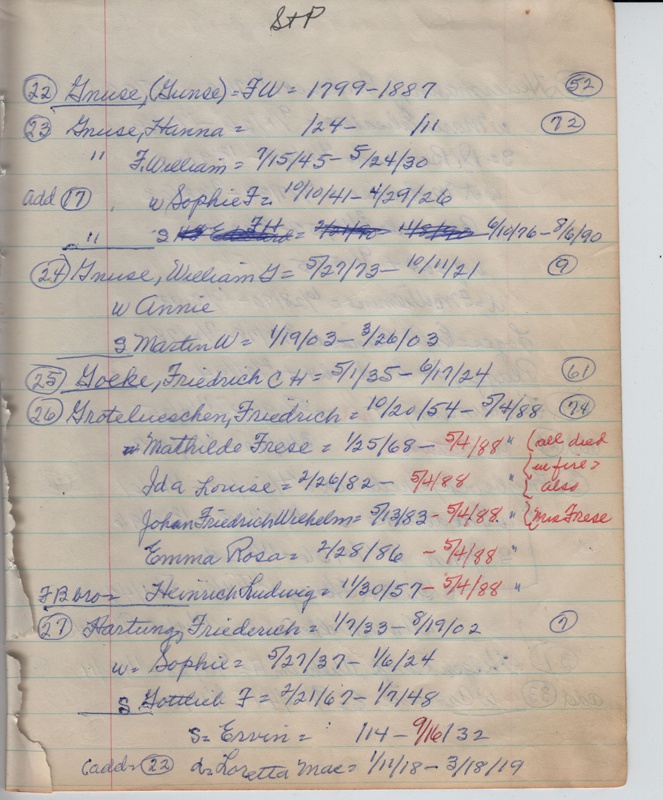 S+P
(22) Gnuse, (Gunse) = FW = 1799-1887 (52)
(23) Gnuse, Hanna = /24- /11 (72)
" F. William = 7/15/45 - 5/24/30
add (17) w Sophie F = 10/10/41 - 4/29/26
" S FH = 6/10/76 - 8/6/90
(24) Gnuse, William G = 5/27/73 - 10/11/21 (9)
w Annie
S Martin W = 1/19/03 - 3/26/03
(25) Goeke, Friedrich C H = 5/1/35 - 6/17/24 (61)
(26) Grotelueschen, Friedrich = 10/20/54 - 5/4/88 (74)
w Mathilde Frese = 1/25/68 - 5/4/88 " { all died
Ida Louise = 2/26/82 - 5/4/88 " { in fire >
{ also
Johan Friedrich Wilhelm = 5/13/83 - 5/4/88 " { Mrs Frese
Emma Rosa = 2/28/86 - 5/4/88 "
FB bro = Heinrich Ludwig = 11/30/57 - 5/4/88 "
(27) Hartung, Friederich = 1/7/33 - 8/19/02 (7)
w = Sophie = 5/27/37 - 1/6/24
S Gottlieb F = 2/21/67 - 1/7/48
S = Ervin = /14 - 9/16/32
add = (22) d = Loretta Mae = 1/11/18 - 3/18/19